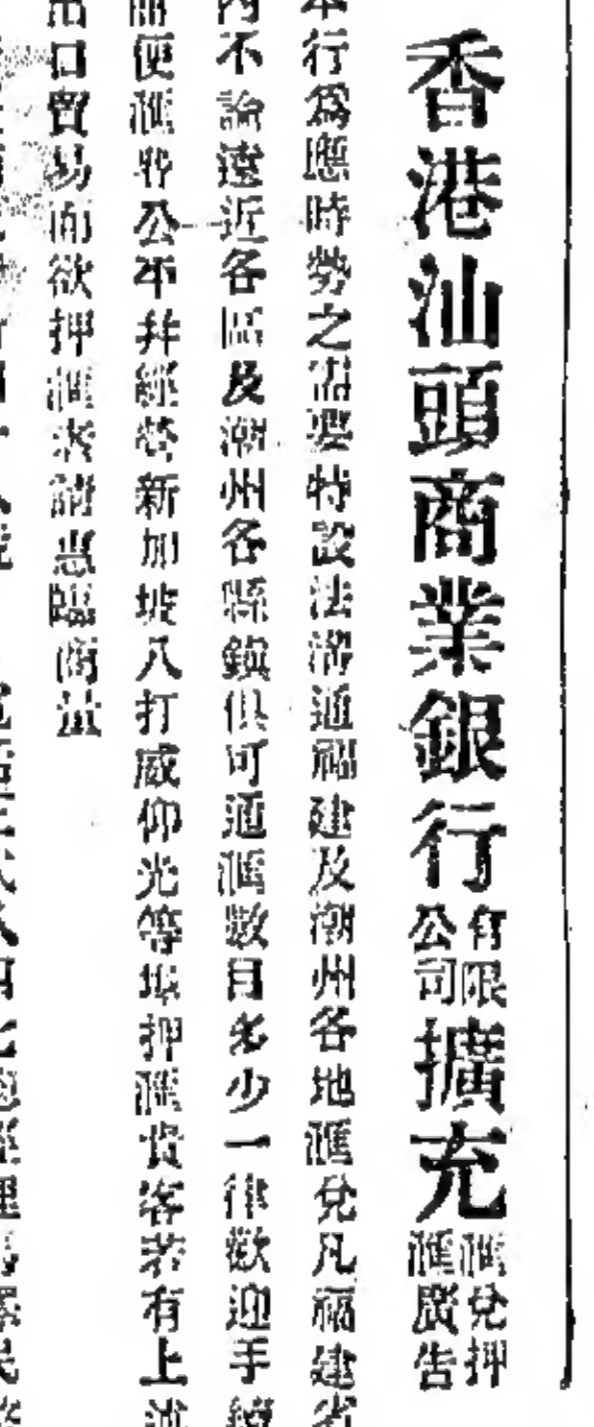 香港汕頭商業銀行有限公司擴充匯兌押匯廣告
本行爲應時勢之需要特設法溝通福建及潮州各地匯兌凡福建省
內不論遠近各區及潮州各縣鎮俱可通匯數目多少一律歡迎手續
簡便匯水公平幷經營新加坡八打威仰光等埠押匯貴客若有上述
出口貿易而欲押匯者請惠臨商量